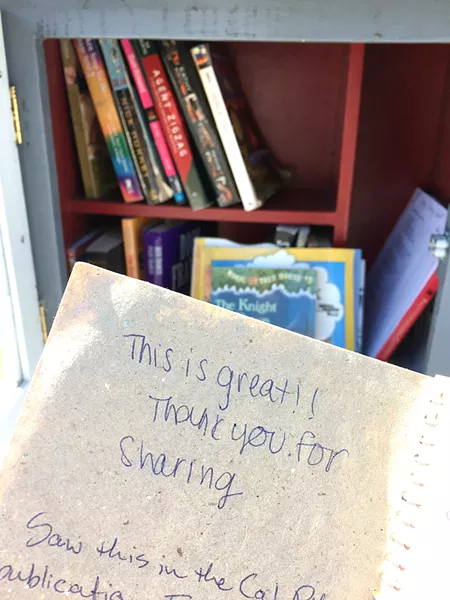 AGENT ZIGZAG
MAGIC TREE HOUSE
The Knight
This is great!!
Thank you for
Sharing
Saw this in the Cal
publicatio